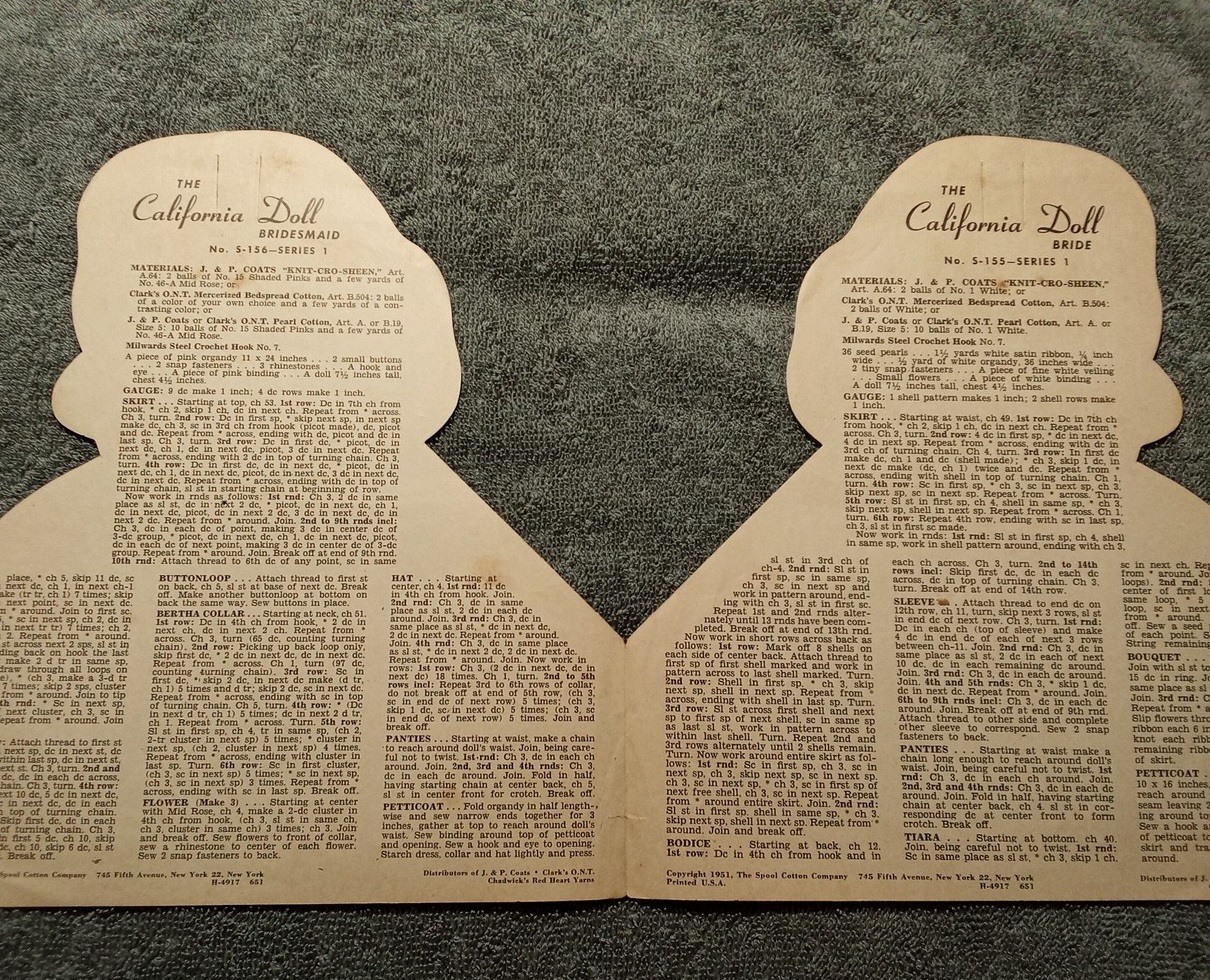 THE
California Doll
BRIDESMAID
No. S-156—SERIES 1
MATERIALS: J. & P. COATS "KNIT-CRO-SHEEN," Art.
A.64: 2 balls of No. 15 Shaded Pinks and a few yards of
No. 46-A Mid Rose; or
Clark's O.N.T. Mercerized Bedspread Cotton, Art. B.504: 2 balls
of a color of your own choice and a few yards of a con-
trasting color; or
J. & P. Coats or Clark's O.N.T. Pearl Cotton, Art. A. or B.19,
Size 5: 10 balls of No. 15 Shaded Pinks and a few yards of
No. 46-A Mid Rose.
Milwards Steel Crochet Hook No. 7.
A piece of pink organdy 11 x 24 inches . . . 2 small buttons
. . . 2 snap fasteners . . . 3 rhinestones . . . A hook and
eye . . . A piece of pink binding . . . A doll 7½ inches tall,
chest 4½ inches.
GAUGE: 9 dc make 1 inch; 4 dc rows make 1 inch.
SKIRT . . . Starting at top, ch 53. 1st row: Dc in 7th ch from
hook, * ch 2, skip 1 ch, dc in next ch. Repeat from * across.
Ch 3, turn. 2nd row: Dc in first sp, * skip next sp, in next sp
make dc, ch 3, sc in 3rd ch from hook (picot made), dc, picot
and dc. Repeat from * across, ending with dc, picot and dc in
last sp. Ch 3, turn. 3rd row: Dc in first dc, * picot, dc in
next dc, ch 1, dc in next dc, picot, 3 dc in next dc. Repeat
from * across, ending with 2 dc in top of turning chain. Ch 3,
turn. 4th row: Dc in first dc, dc in next dc, * picot, dc in
next dc, ch 1, dc in next dc, picot, dc in next dc, 3 dc in next dc,
dc in next dc. Repeat from * across, ending with dc in top of
turning chain, sl st in starting chain at beginning of row.
Now work in rnds as follows: 1st rnd: Ch 3, 2 dc in same
place as sl st, dc in next 2 dc, * picot, dc in next dc, ch 1,
dc in next dc, picot, dc in next 2 dc, 3 dc in next dc, dc in
next 2 dc. Repeat from * around. Join. 2nd to 9th rnds incl:
Ch 3, dc in each dc of point, making 3 dc in center dc of
3-dc group, * picot, dc in next dc, ch 1, dc in next dc, picot,
dc in each dc of next point, making 3 dc in center dc of 3-dc
group. Repeat from * around. Join. Break off at end of 9th rnd.
10th rnd: Attach thread to 6th dc of any point, sc in same
place, * ch 5, skip 11 dc, sc
next dc, ch 1, sc in next ch-1
ake (tr tr, ch 1) 7 times; skip
next point, sc in next dc.
* around. Join to first sc.
* sc in next sp, ch 2, dc in
in next tr tr) 7 times; ch 2,
2. Repeat from * around.
st across next 2 sps, sl st in
ding back on hook the last
make 2 d tr in same sp,
draw through all loops on
e), * (ch 3, make a 3-d tr
7 times; skip 2 sps, cluster
from * around. Join to tip
th rnd: * Sc in next sp,
next cluster, ch 3, sc in
epeat from * around. Join
Attach thread to first st
next sp, dc in next st, dc
within last sp, dc in next st,
next st. Ch 3, turn. 2nd and
dc, dc in each dc across,
chain. Ch 3, turn. 4th row:
next 10 dc, 5 dc in next dc,
in next dc and in each
top of turning chain.
Skip first dc, dc in each
of turning chain. Ch 3,
in first 5 dc, ch 10, skip
dc, ch 10, skip 6 dc, sl st
Break off.
BUTTONLOOP . . . Attach thread to first st
on back, ch 5, sl st at base of next dc. Break
off. Make another buttonloop at bottom of
back the same way. Sew buttons in place.
BERTHA COLLAR . . . Starting at neck, ch 51.
1st row: Dc in 4th ch from hook, * 2 dc in
next ch, dc in next 2 ch. Repeat from *
across. Ch 3, turn (65 dc, counting turning
chain). 2nd row: Picking up back loop only,
skip first dc, * 2 dc in next dc, dc in next dc.
Repeat from * across. Ch 1, turn (97 dc,
counting turning chain). 3rd row: Sc in
first dc, * skip 2 dc, in next dc make (d tr,
ch 1) 5 times and d tr; skip 2 dc, sc in next dc.
Repeat from * across, ending with sc in top
of turning chain. Ch 5, turn. 4th row: * (Dc
in next d tr, ch 1) 5 times; dc in next 2 d tr,
ch 1. Repeat from * across. Turn. 5th row:
Sl st in first sp, ch 4, tr in same sp, (ch 2,
2-tr cluster in next sp) 5 times; * cluster in
next sp, (ch 2, cluster in next sp) 4 times.
Repeat from * across, ending with cluster in
last sp. Turn. 6th row: Sc in first cluster,
(ch 3, sc in next sp) 5 times; * sc in next sp,
(ch 3, sc in next sp) 3 times. Repeat from *
across, ending with sc in last sp. Break off.
FLOWER (Make 3) . . . Starting at center
with Mid Rose, ch 4, make a 2-dc cluster in
4th ch from hook, (ch 3, sl st in same ch,
ch 3, cluster in same ch) 3 times; ch 3. Join
and break off. Sew flowers to front of collar,
sew a rhinestone to center of each flower.
Sew 2 snap fasteners to back.
HAT . . . Starting at
center, ch 4. 1st rnd: 11 dc
in 4th ch from hook. Join.
2nd rnd: Ch 3, dc in same place
as sl st, 2 dc in each dc
around. Join. 3rd rnd: Ch 3, dc in
same place as sl st, * dc in next dc,
2 dc in next dc. Repeat from * around.
Join. 4th rnd: Ch 3, dc in same place
as sl st, * dc in next 2 dc, 2 dc in next dc.
Repeat from * around. Join. Now work in
rows: 1st row: Ch 3, (2 dc in next dc, dc in
next dc) 18 times. Ch 1, turn. 2nd to 5th
rows incl: Repeat 3rd to 6th rows of collar,
do not break off at end of 5th row, (ch 3,
sc in end dc of next row) 5 times; (ch 3,
skip 1 dc, sc in next dc) 5 times; (ch 3, sc
in end dc of next row) 5 times. Join and
break off.
PANTIES . . . Starting at waist, make a chain
to reach around doll's waist. Join, being care-
ful not to twist. 1st rnd: Ch 3, dc in each ch
around. Join. 2nd, 3rd and 4th rnds: Ch 3,
dc in each dc around. Join. Fold in half,
having starting chain at center back, ch 5,
sl st in center front for crotch. Break off.
PETTICOAT . . . Fold organdy in half length-
wise and sew narrow ends together for 3
inches, gather at top to reach around doll's
waist. Sew binding around top of petticoat
and opening. Sew a hook and eye to opening.
Starch dress, collar and hat lightly and press.
Spool Cotton Company 745 Fifth Avenue, New York 22, New York
H-4917 651
Distributors of J. & P. Coats • Clark's O.N.T.
Chadwick's Red Heart Yarns
THE
California Doll
BRIDE
No. S-155—SERIES 1
MATERIALS: J. & P. COATS "KNIT-CRO-SHEEN,"
Art. A.64: 2 balls of No. 1 White; or
Clark's O.N.T. Mercerized Bedspread Cotton, Art. B.504:
2 balls of White; or
J. & P. Coats or Clark's O.N.T. Pearl Cotton, Art. A. or
B.19, Size 5: 10 balls of No. 1 White.
Milwards Steel Crochet Hook No. 7.
36 seed pearls . . . 1½ yards white satin ribbon, ¼ inch
wide . . . ½ yard of white organdy, 36 inches wide . . .
2 tiny snap fasteners . . . A piece of fine white veiling
. . . Small flowers . . . A piece of white binding . . .
A doll 7½ inches tall, chest 4½ inches.
GAUGE: 1 shell pattern makes 1 inch; 2 shell rows make
1 inch.
SKIRT . . . Starting at waist, ch 49. 1st row: Dc in 7th ch
from hook, * ch 2, skip 1 ch, dc in next ch. Repeat from *
across. Ch 3, turn. 2nd row: 4 dc in first sp, * dc in next dc,
4 dc in next sp. Repeat from * across, ending with dc in
3rd ch of turning chain. Ch 4, turn. 3rd row: In first dc
make dc, ch 1 and dc (shell made); * ch 3, skip 1 dc, in
next dc make (dc, ch 1) twice and dc. Repeat from *
across, ending with shell in top of turning chain. Ch 1,
turn. 4th row: Sc in first sp, * ch 3, sc in next sp, ch 3,
skip next sp, sc in next sp. Repeat from * across. Turn.
5th row: Sl st in first sp, ch 4, shell in same sp, * ch 3,
skip next sp, shell in next sp. Repeat from * across. Ch 1,
turn. 6th row: Repeat 4th row, ending with sc in last sp,
ch 3, sl st in first sc made.
Now work in rnds: 1st rnd: Sl st in first sp, ch 4, shell
in same sp, work in shell pattern around, ending with ch 3,
sl st in 3rd ch of
ch-4. 2nd rnd: Sl st in
first sp, sc in same sp,
ch 3, sc in next sp and
work in pattern around, end-
ing with ch 3, sl st in first sc.
Repeat 1st and 2nd rnds alter-
nately until 13 rnds have been com-
pleted. Break off at end of 13th rnd.
Now work in short rows across back as
follows: 1st row: Mark off 8 shells on
each side of center back. Attach thread to
first sp of first shell marked and work in
pattern across to last shell marked. Turn.
2nd row: Shell in first sp, * ch 3, skip
next sp, shell in next sp. Repeat from *
across, ending with shell in last sp. Turn.
3rd row: Sl st across first shell and next
sp to first sp of next shell, sc in same sp
as last sl st, work in pattern across to
within last shell. Turn. Repeat 2nd and
3rd rows alternately until 2 shells remain.
Turn. Now work around entire skirt as fol-
lows: 1st rnd: Sc in first sp, ch 3, sc in
next sp, ch 3, skip next sp, sc in next sp,
ch 3, sc in next sp, * ch 3, sc in first sp of
next free shell, ch 3, sc in next sp. Repeat
from * around entire skirt. Join. 2nd rnd:
Sl st in first sp, shell in same sp, * ch 3,
skip next sp, shell in next sp. Repeat from *
around. Join and break off.
BODICE . . . Starting at back, ch 12.
1st row: Dc in 4th ch from hook and in
each ch across. Ch 3, turn. 2nd to 14th
rows incl: Skip first dc, dc in each dc
across, dc in top of turning chain. Ch 3,
turn. Break off at end of 14th row.
SLEEVE . . . Attach thread to end dc on
12th row, ch 11, turn, skip next 3 rows, sl st
in end dc of next row. Ch 3, turn. 1st rnd:
Dc in each ch (top of sleeve) and make
4 dc in end dc of each of next 3 rows
between ch-11. Join. 2nd rnd: Ch 3, dc in
same place as sl st, 2 dc in each of next
10 dc, dc in each remaining dc around.
Join. 3rd rnd: Ch 3, dc in each dc around.
Join. 4th and 5th rnds: Ch 3, * skip 1 dc,
dc in next dc. Repeat from * around. Join.
6th to 9th rnds incl: Ch 3, dc in each dc
around. Join. Break off at end of 9th rnd.
Attach thread to other side and complete
other sleeve to correspond. Sew 2 snap
fasteners to back.
PANTIES . . . Starting at waist make a
chain long enough to reach around doll's
waist. Join, being careful not to twist. 1st
rnd: Ch 3, dc in each ch around. Join.
2nd, 3rd and 4th rnds: Ch 3, dc in each dc
around. Join. Fold in half, having starting
chain at center back, ch 4, sl st in cor-
responding dc at center front to form
crotch. Break off.
TIARA . . . Starting at bottom, ch 40.
Join, being careful not to twist. 1st rnd:
Sc in same place as sl st, * ch 3, skip 1 ch,
sc in next ch. Rep
from * around. Jo
loops). 2nd rnd:
center of first lo
same loop, * 5
loop, sc in next
from * around.
off. Sew a seed
of each point. S
String remaining
BOUQUET . . .
Join with sl st to
15 dc in ring. Jo
same place as sl
Join. 3rd rnd: C
from * around.
Slip flowers thro
ribbon each 6 in
knot each ribb
remaining ribbo
of skirt.
PETTICOAT .
10 x 16 inches,
each around
seam leaving 2
ing around top
Sew a hook a
of petticoat to
skirt and tra
around.
Copyright 1951, The Spool Cotton Company 745 Fifth Avenue, New York 22, New York
Printed U.S.A.
H-4917 651
Distributors of J.